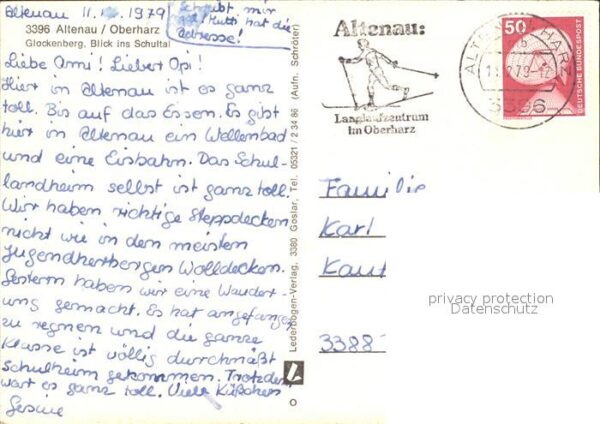 Altenau 11. 1979
Schreibt mir
mal, Kutti hat die
Adresse!
3396 Altenau / Oberharz
Glockenberg, Blick ins Schultal
Liebe Omi! Lieber Opi!
Hier in Altenau ist es ganz
toll. Bis auf das Essen. Es gibt
hier in Altenau ein Wellenbad
und eine Eisbahn. Das Schul-
landheim selbst ist ganz toll.
Wir haben richtige Steppdecken
nicht wie in den meisten
Jugendherbergen Wolldecken.
Gestern haben wir eine Wander-
ung gemacht. Es hat angefangen
zu regnen und die ganze
Klasse ist völlig durchnäßt
Schulheim gekommen. Trotzdem
war es ganz toll. Viele Küßchen
Gesine
Lederbogen-Verlag, 3380 Goslar, Tel. 05321 / 2 34 86 (Aufn. Schröter)
Altenau:
Langlaufzentrum
im Oberharz
ALTENAU, HARZ
3396
50
DEUTSCHE BUNDESPOST
Familie
Karl
Kaut
3388
privacy protection
Datenschutz